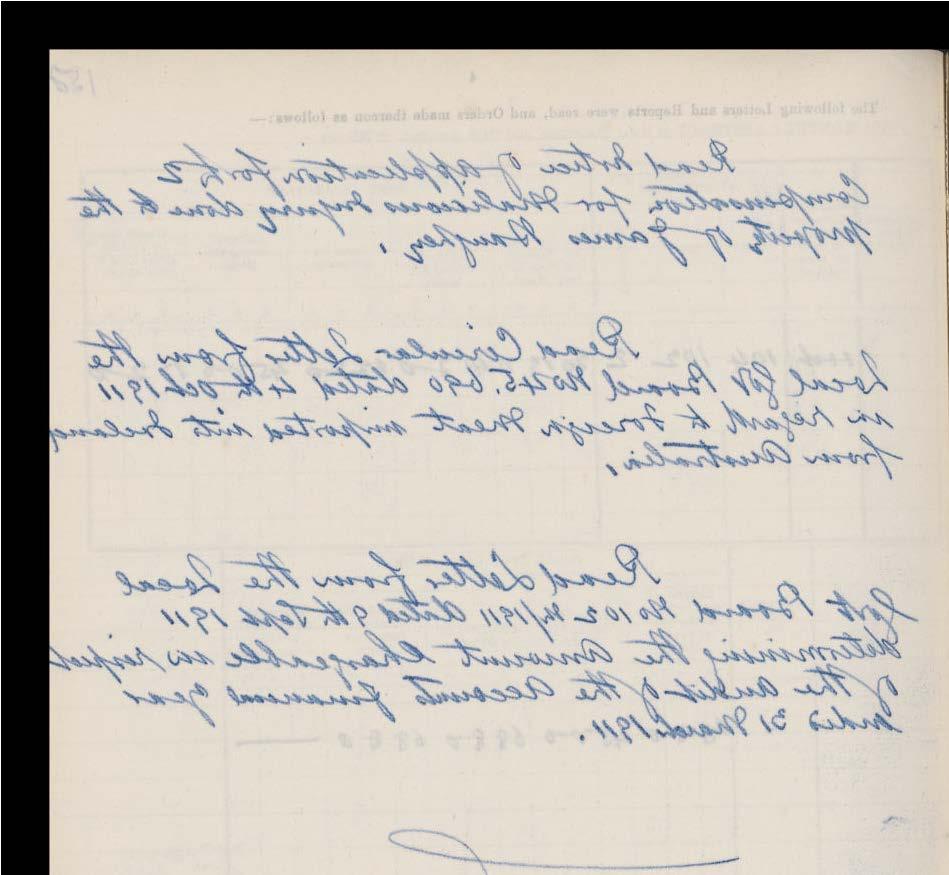 138
The following Letters and Reports were read, and Orders made thereon as follows:—
Read Notice of application for £2
Compensation for Malicious Injury done to the
property of James
Read Circular Letter from the
Local Govt Board No 45.690 dated 4th Oct 1911
in regard to Foreign Meat imported into Ireland
from Australia.
Read Letter from the Local
Govt Board No 102 /1911 dated 9th Sept 1911
determining the Amount Chargeable in respect
of the Audit of the Accounts financial year
ended 31 March 1911.